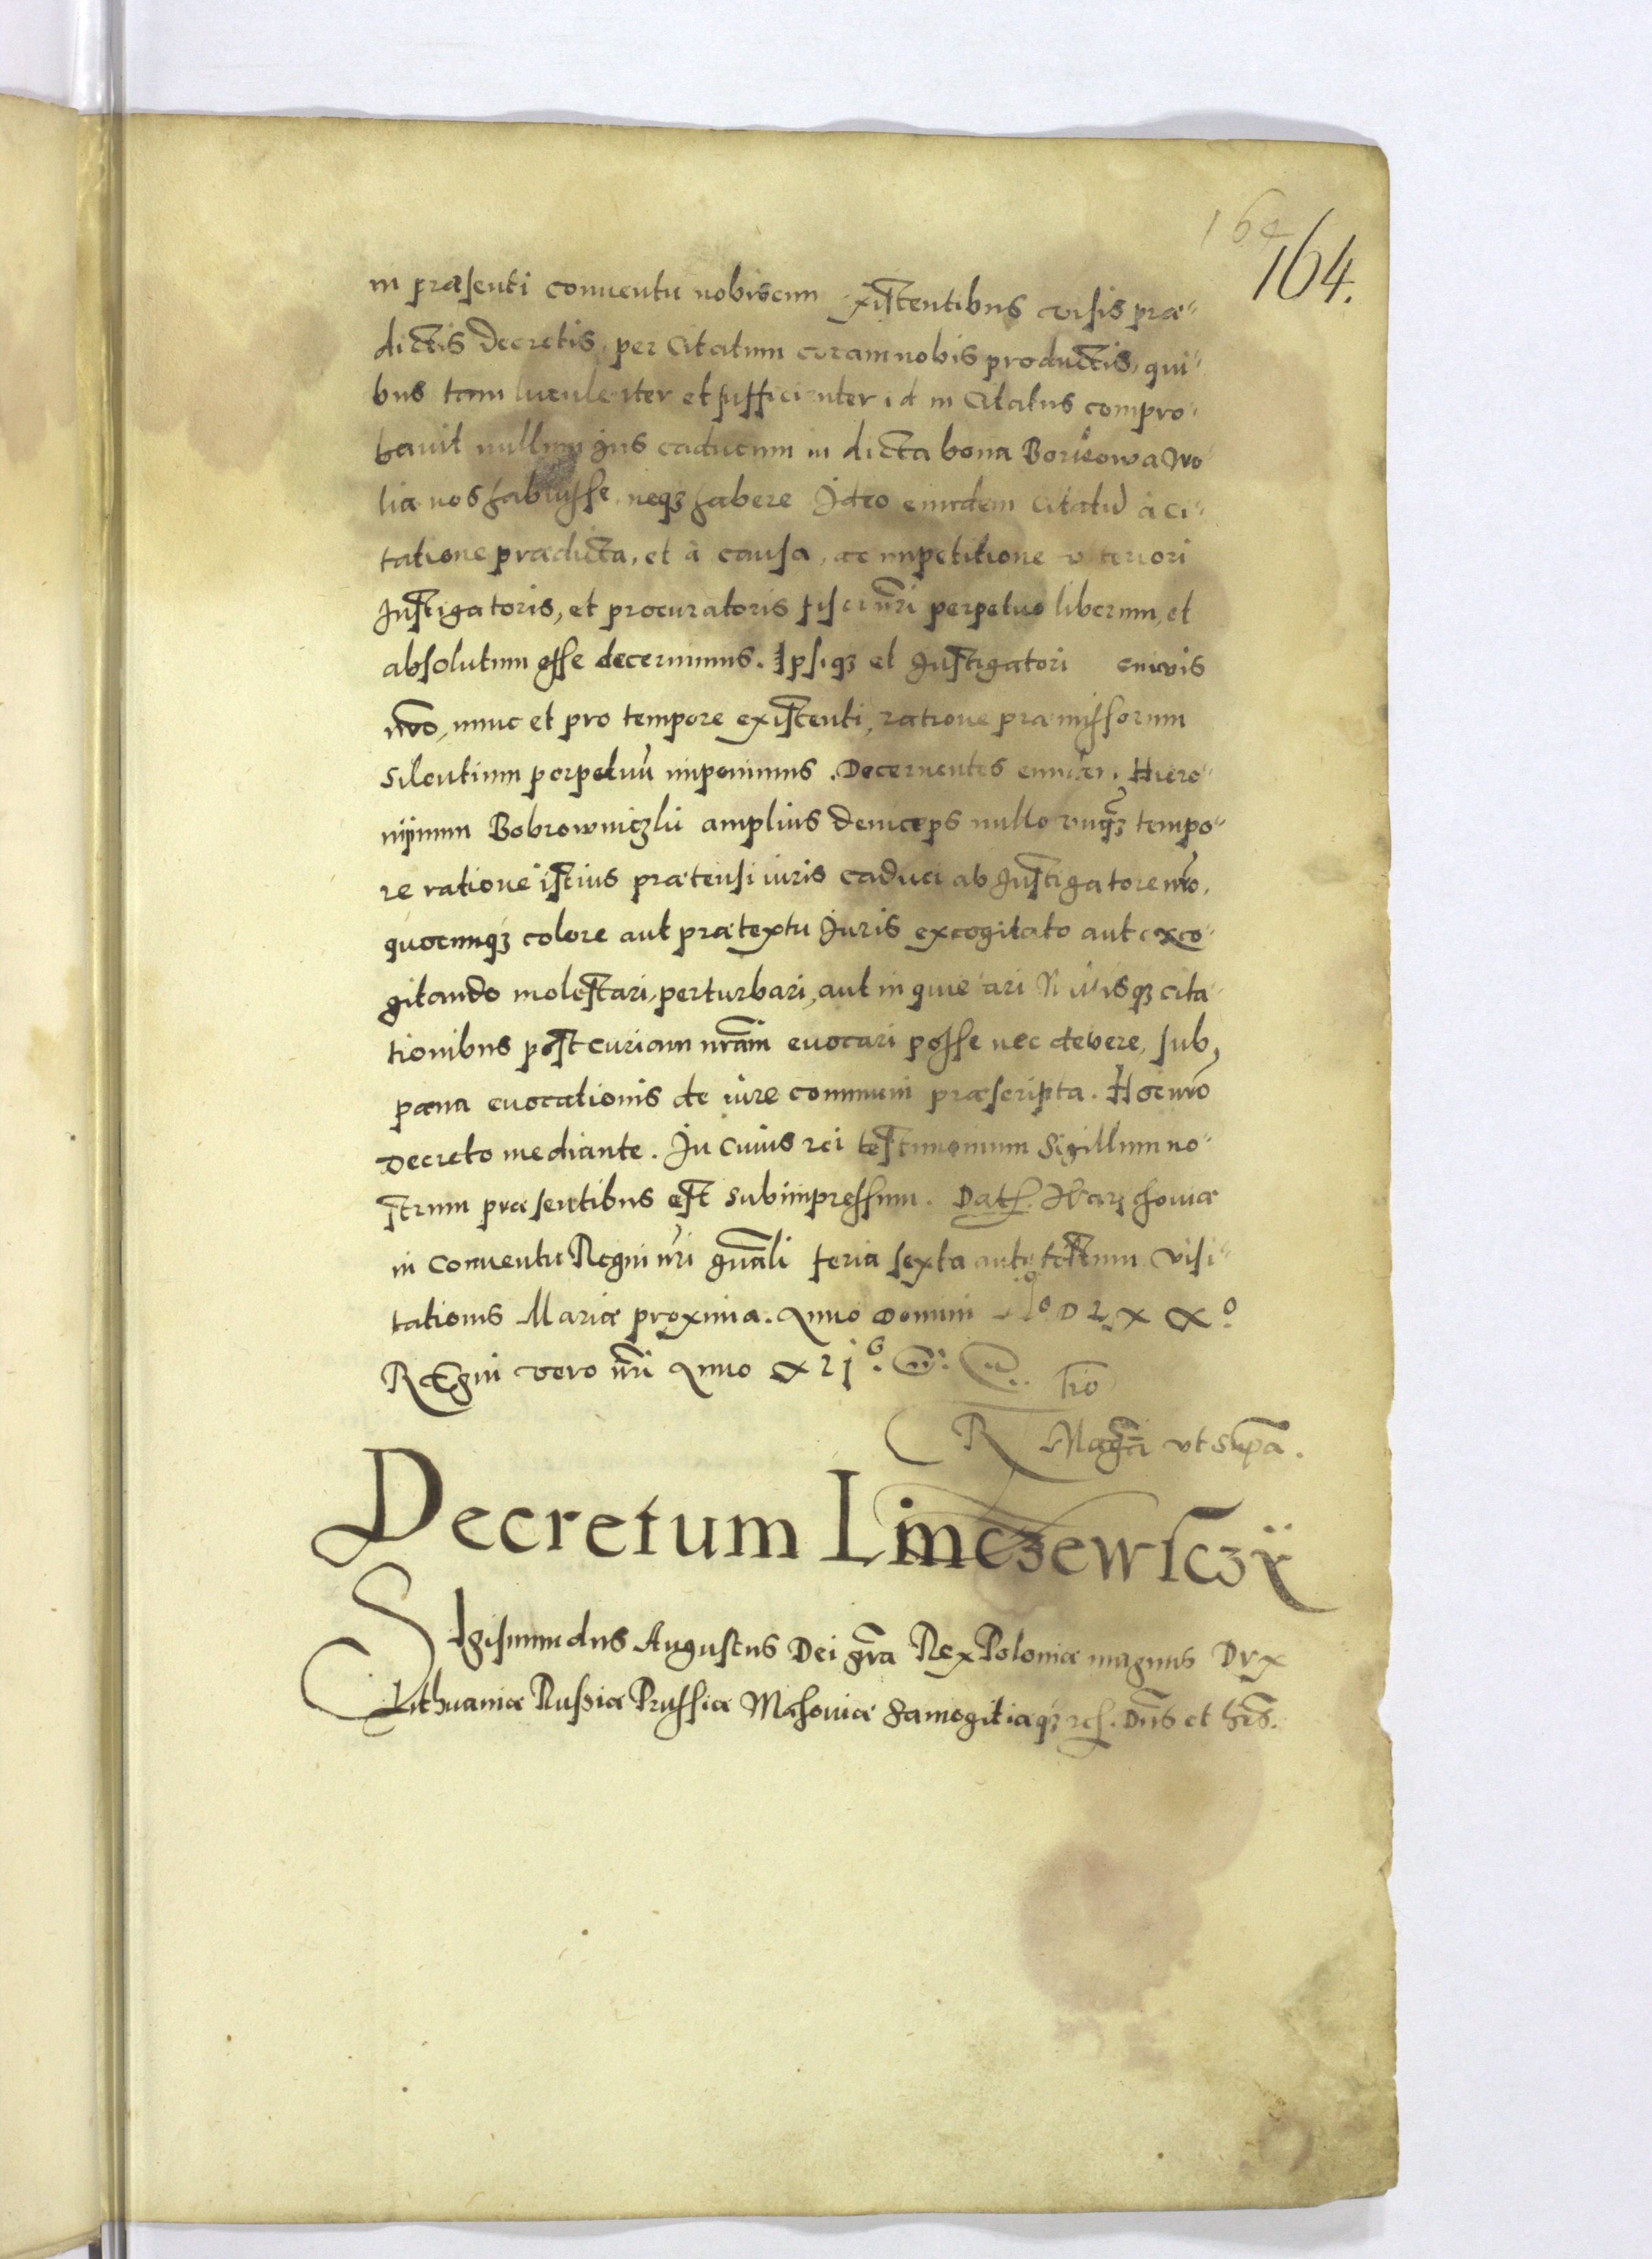 164
164.
in præsenti conventu nobiscum existentibus visis præ"
dictis decretis, per Citatum coram nobis productis, qui"
bus tam luculenter et sufficienter id in Citatus compro"
bavit nullum Jus caducum in dicta bona Borkowa Wo"
lia nos habuisse, neqꝫ habere Jdeo eundem Citatũ à ci"
tatione prædicta, et à causa, ac impetitione ulteriori
Jnstigatoris, et procuratoris fisci nr̃i perpetuo liberum, et
absolutum esse decernimus. Ipsiqꝫ et Jnstigatori cuivis
nr̃o, nunc et pro tempore existenti, ratione præmissorum
silentium perpetuũ imponimus. Decernentes eundem Hiero"
nijmum Bobrowniczki amplius deinceps nullo vnqꝫ tempo"
re ratione istius prætensi iuris caduci ab Jnstigatore nr̃o,
quocunqꝫ colore aut prætextu Juris excogitato aut exco"
gitando molestari, perturbari, aut inquietari Nivisqꝫ cita"
tionibus post curiam nr̃am evocari posse nec debere, sub
pæna evocationis de iure communi præscripta. Hoc nr̃o
Decreto mediante. Jn Cuius rei testimonium Sigillum no"
strum præsentibus est subimpressum. Dat. Warschoviæ
in Conventu Regni nr̃i gñali feria sexta ante festum Visi"
tationis Mariæ proxima. Anno Domini Mº D LXXº
REgni vero nr̃i Anno XLIº.
R Tio
Magci vt supa.
Decretum Linczewsczÿ
SIgismundus Augustus Dei gr̃a Rex Poloniæ magnus Dvx
Lithuaniæ Russiæ Prussiæ Masoviæ Samogitiæqꝫ etc. Dñs et hres.